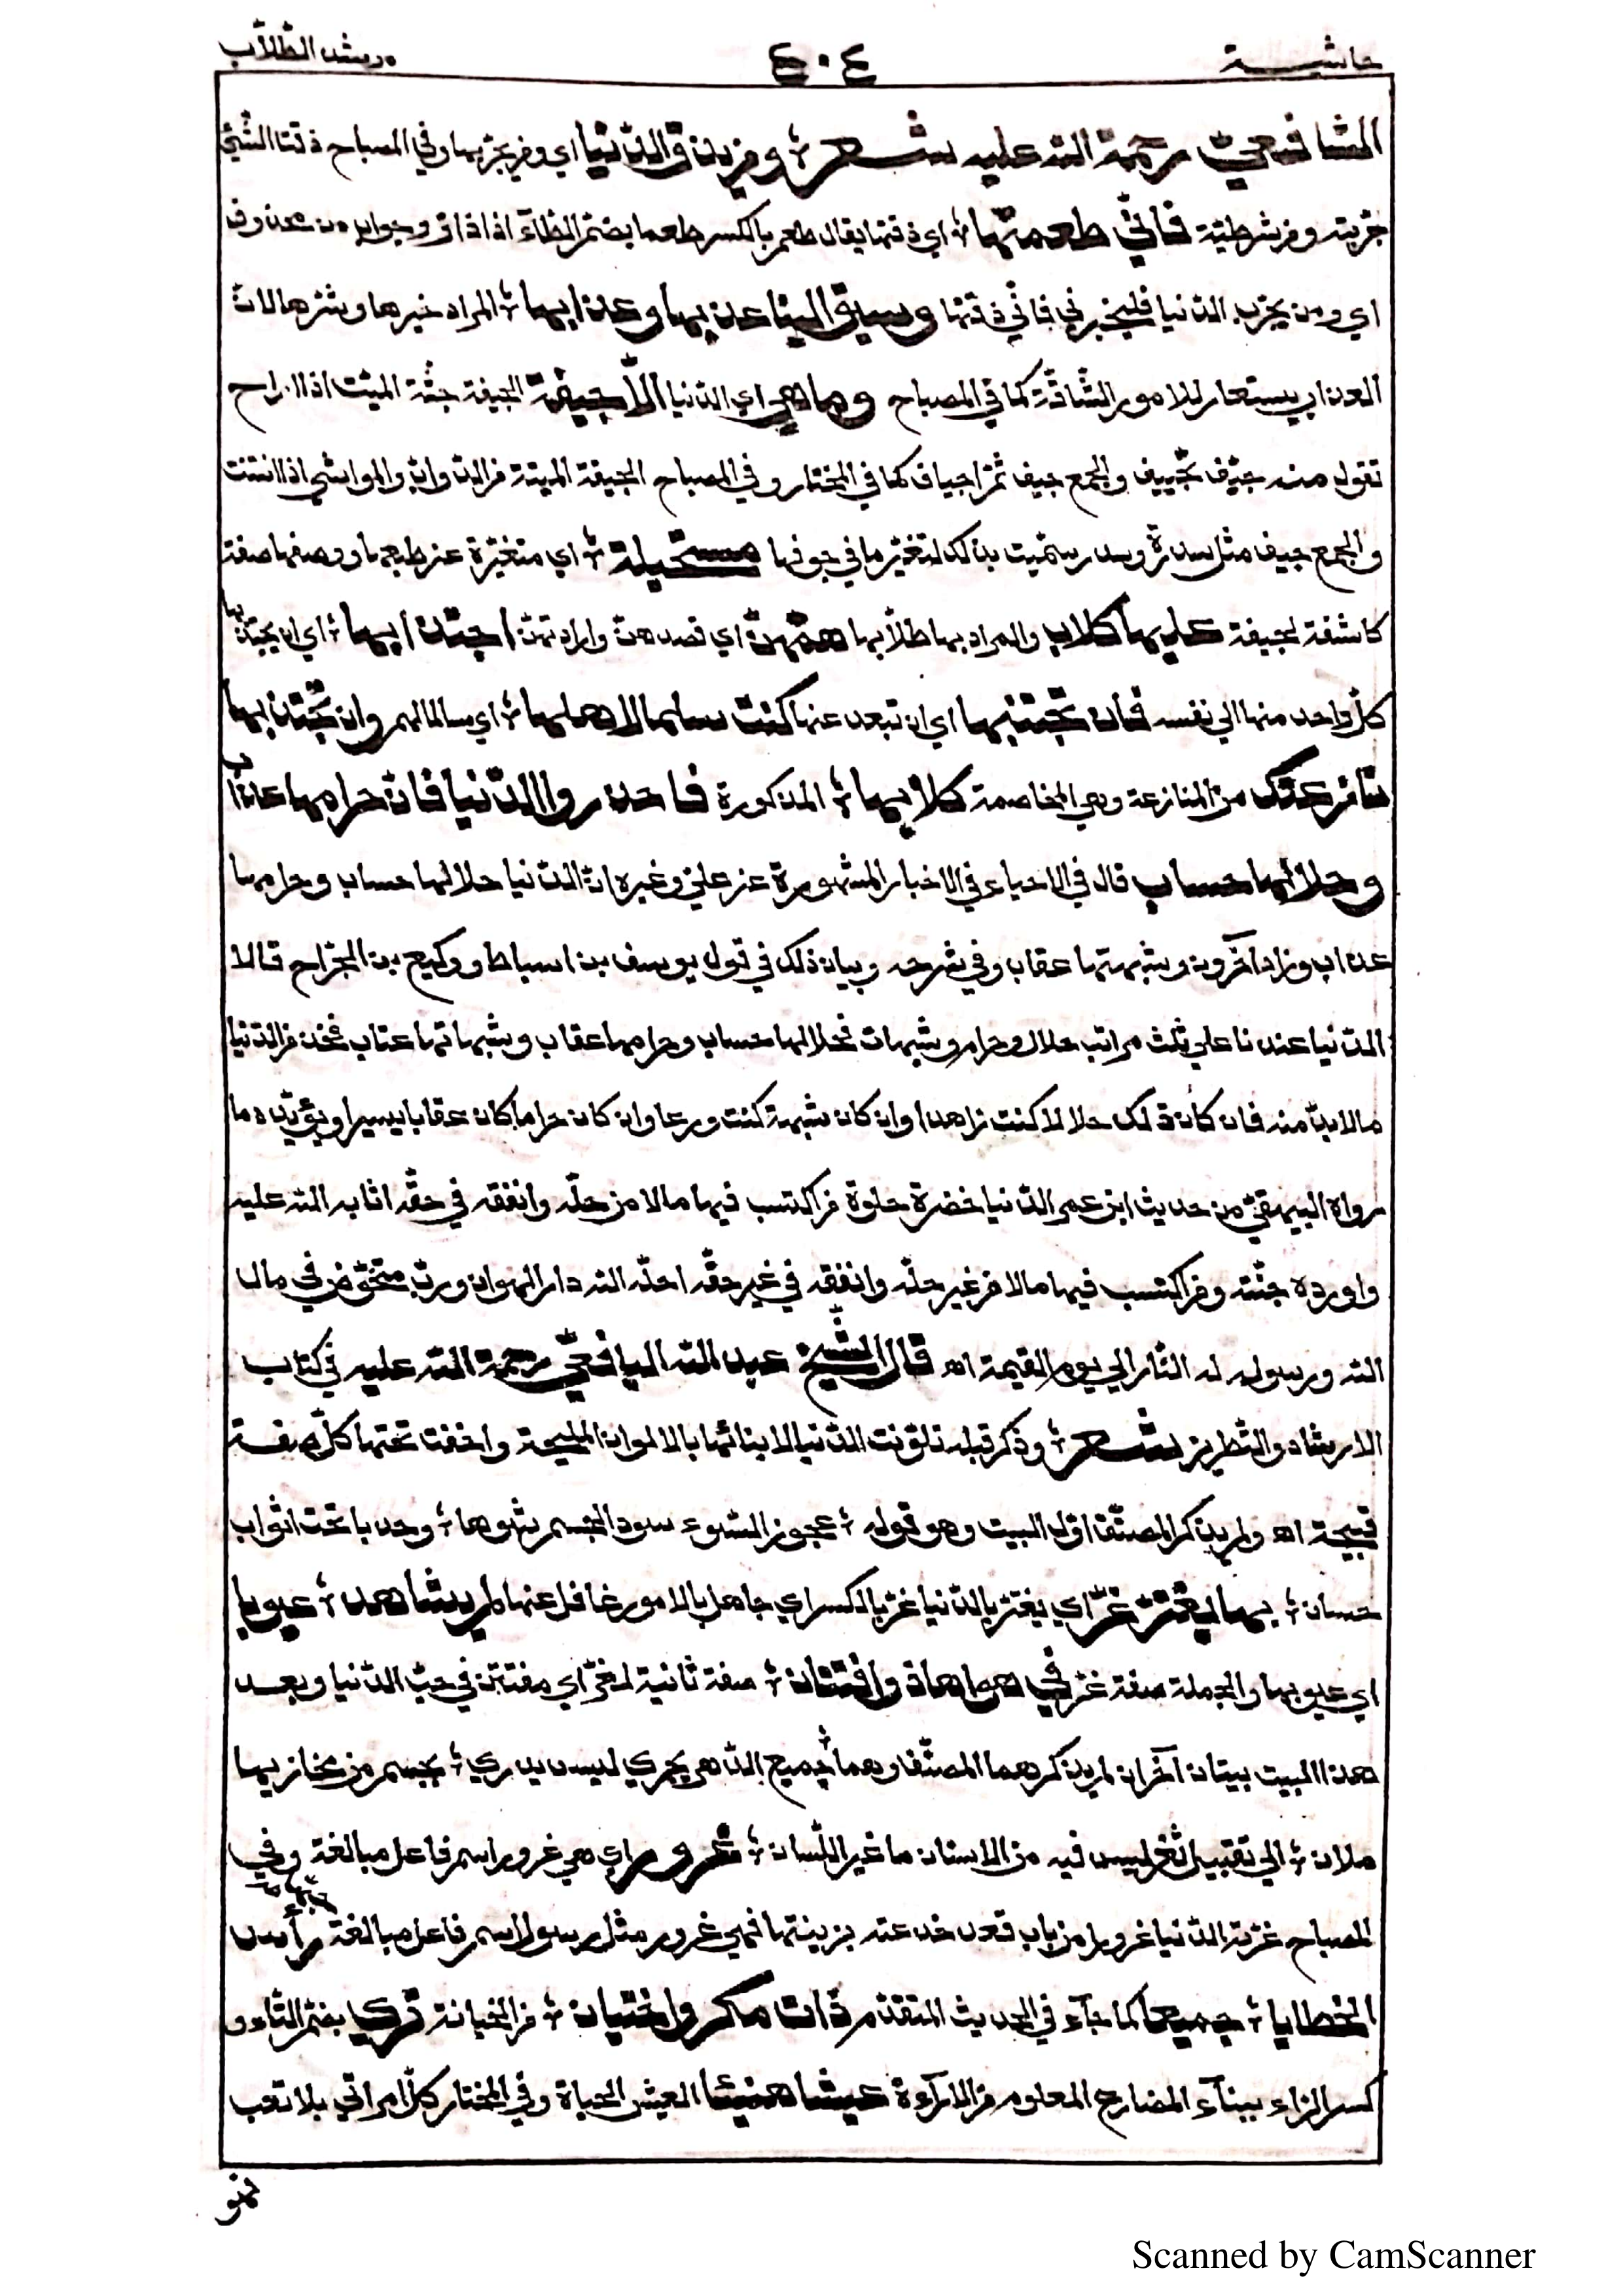 حاشية ٤٠٤ مرشد الطلاب
الشافعيّ رحمة الله عليه شعر؛ ومن يذق الدّنيا اي ومن يجرّبها وفي المصباح ذقت الشّيئ
جرّبته ومن شرطيّة فانّي طعمتها؛ اي ذقتها يقال طعم بالكسر طعما بضمّ الطّآء اذا ذاق وجواب من محذوف
اي ومن يجرّب الدّنيا فليخبرني فانّي ذقتها وسيق الينا عذبها وعذابها؛ المراد خيرها وشرّها لانّ
العذاب يستعار للامور الشّاقّة كما في المصباح وما هي اي الدّنيا الّا جيفة الجيفة جثّة الميّت اذا اراح
تقول منه جيّف تجييف والجمع جيف ثمّ اجياف كما في المختار وفي المصباح الجيفة الميتة من الدّوابّ والمواشي اذا انتنت
والجمع جيف مثل سدرة وسدر سمّيت بذلك لتغيّر ما في جوفها مستحيلة؛ اي متغيّرة عن طبعها ووصفها صفة
كاشفة لجيفة عليها كلاب والمراد بها طلّابها همّهنّ اي قصدهنّ وارادتهنّ اجتذابها؛ اي ان يجتذبها
كلّ واحد منها الي نفسه فان تجتنبها اي ان تبعد عنها كنت سلما لاهلها؛ اي سالما لهم وان تجتذبها
نازعتك من المنازعة وهي المخاصمة كلابها؛ المذكورة فاحذروا الدّنيا فانّ حرامها عذاب
وحلالها حساب قال في الاحياء في الاخبار المشهورة عن عليّ وغيره انّ الدّنيا حلالها حساب وحرامها
عذاب وزاد آخرون وشبهتها عقاب وفي شرحه وبيان ذلك في قول يوسف بن اسباط ووكيع بن الجرّاح قالا
الدّنيا عندنا علي ثلث مراتب حلال وحرام وشبهات فحلالها حساب وحرامها عقاب وشبهاتها عتاب فخذ من الدّنيا
ما لا بدّ منه فان كان ذلك حلالا كنت زاهدا وان كان شبهة كنت ورعا وان كان حراما كان عقابا يسيرا ويؤيّده ما
رواه البيهقيّ من حديث ابن عمر الدّنيا خضرة حلوة من اكتسب فيها مالا من حلّه وانفقه في حقّه اثابه الله عليه
واورده جنّته ومن اكتسب فيها مالا من غير حلّه وانفقه في غير حقّه احلّه الله دار الهوان وربّ متخوّض في مال
الله ورسوله له النّار الي يوم القيمة اه قال الشّيخ عبد الله اليافعيّ رحمة الله عليه في كتاب
الارشاد والتّطريز شعر؛ وذكر قبله تلوّنت الدّنيا لابنائها بالالوان المليحة واخفت تحتها كلّ صفة
قبيحة اه ولم يذكر المصنّف اوّل البيت وهو قوله؛ عجوز السّوء سود الجسم شوها؛ وحدبا تحت اثواب
حسان؛ بها يغترّ غرّ اي يغترّ بالدّنيا غرّ بالكسر اي جاهل بالامور غافل عنها لم يشاهد؛ عيوبا
اي عيوبها والجملة صفة غرّ في هواها ذو افتتان؛ صفة ثانية لغرّ اي مفتتن في حبّ الدّنيا وبعد
هذا البيت بيتان آخران لم يذكرهما المصنّف وهما جميع الدّهر يجري ليس يدري؛ بجسم من مخازيها
ملان؛ الي تقبيل ثغر ليس فيه من الاسنان ما غير اللّسان؛ غرور اي هي غرور اسم فاعل مبالغة وفي
المصباح غرّته الدّنيا غرورا من باب قعد خدعته بزينتها فهي غرور مثل رسول اسم فاعل مبالغة رأس
الخطايا؛ جميعا كما جآء في الحديث المتقدّم ذات مكر واختيان؛ من الخيانة تري بضمّ التّاء و
كسر الرّاء ببنآء المضارع المعلوم من الارآءة عيشا هنيئا العيش الحياة وفي المختار كلّ امر اتي بلا تعب